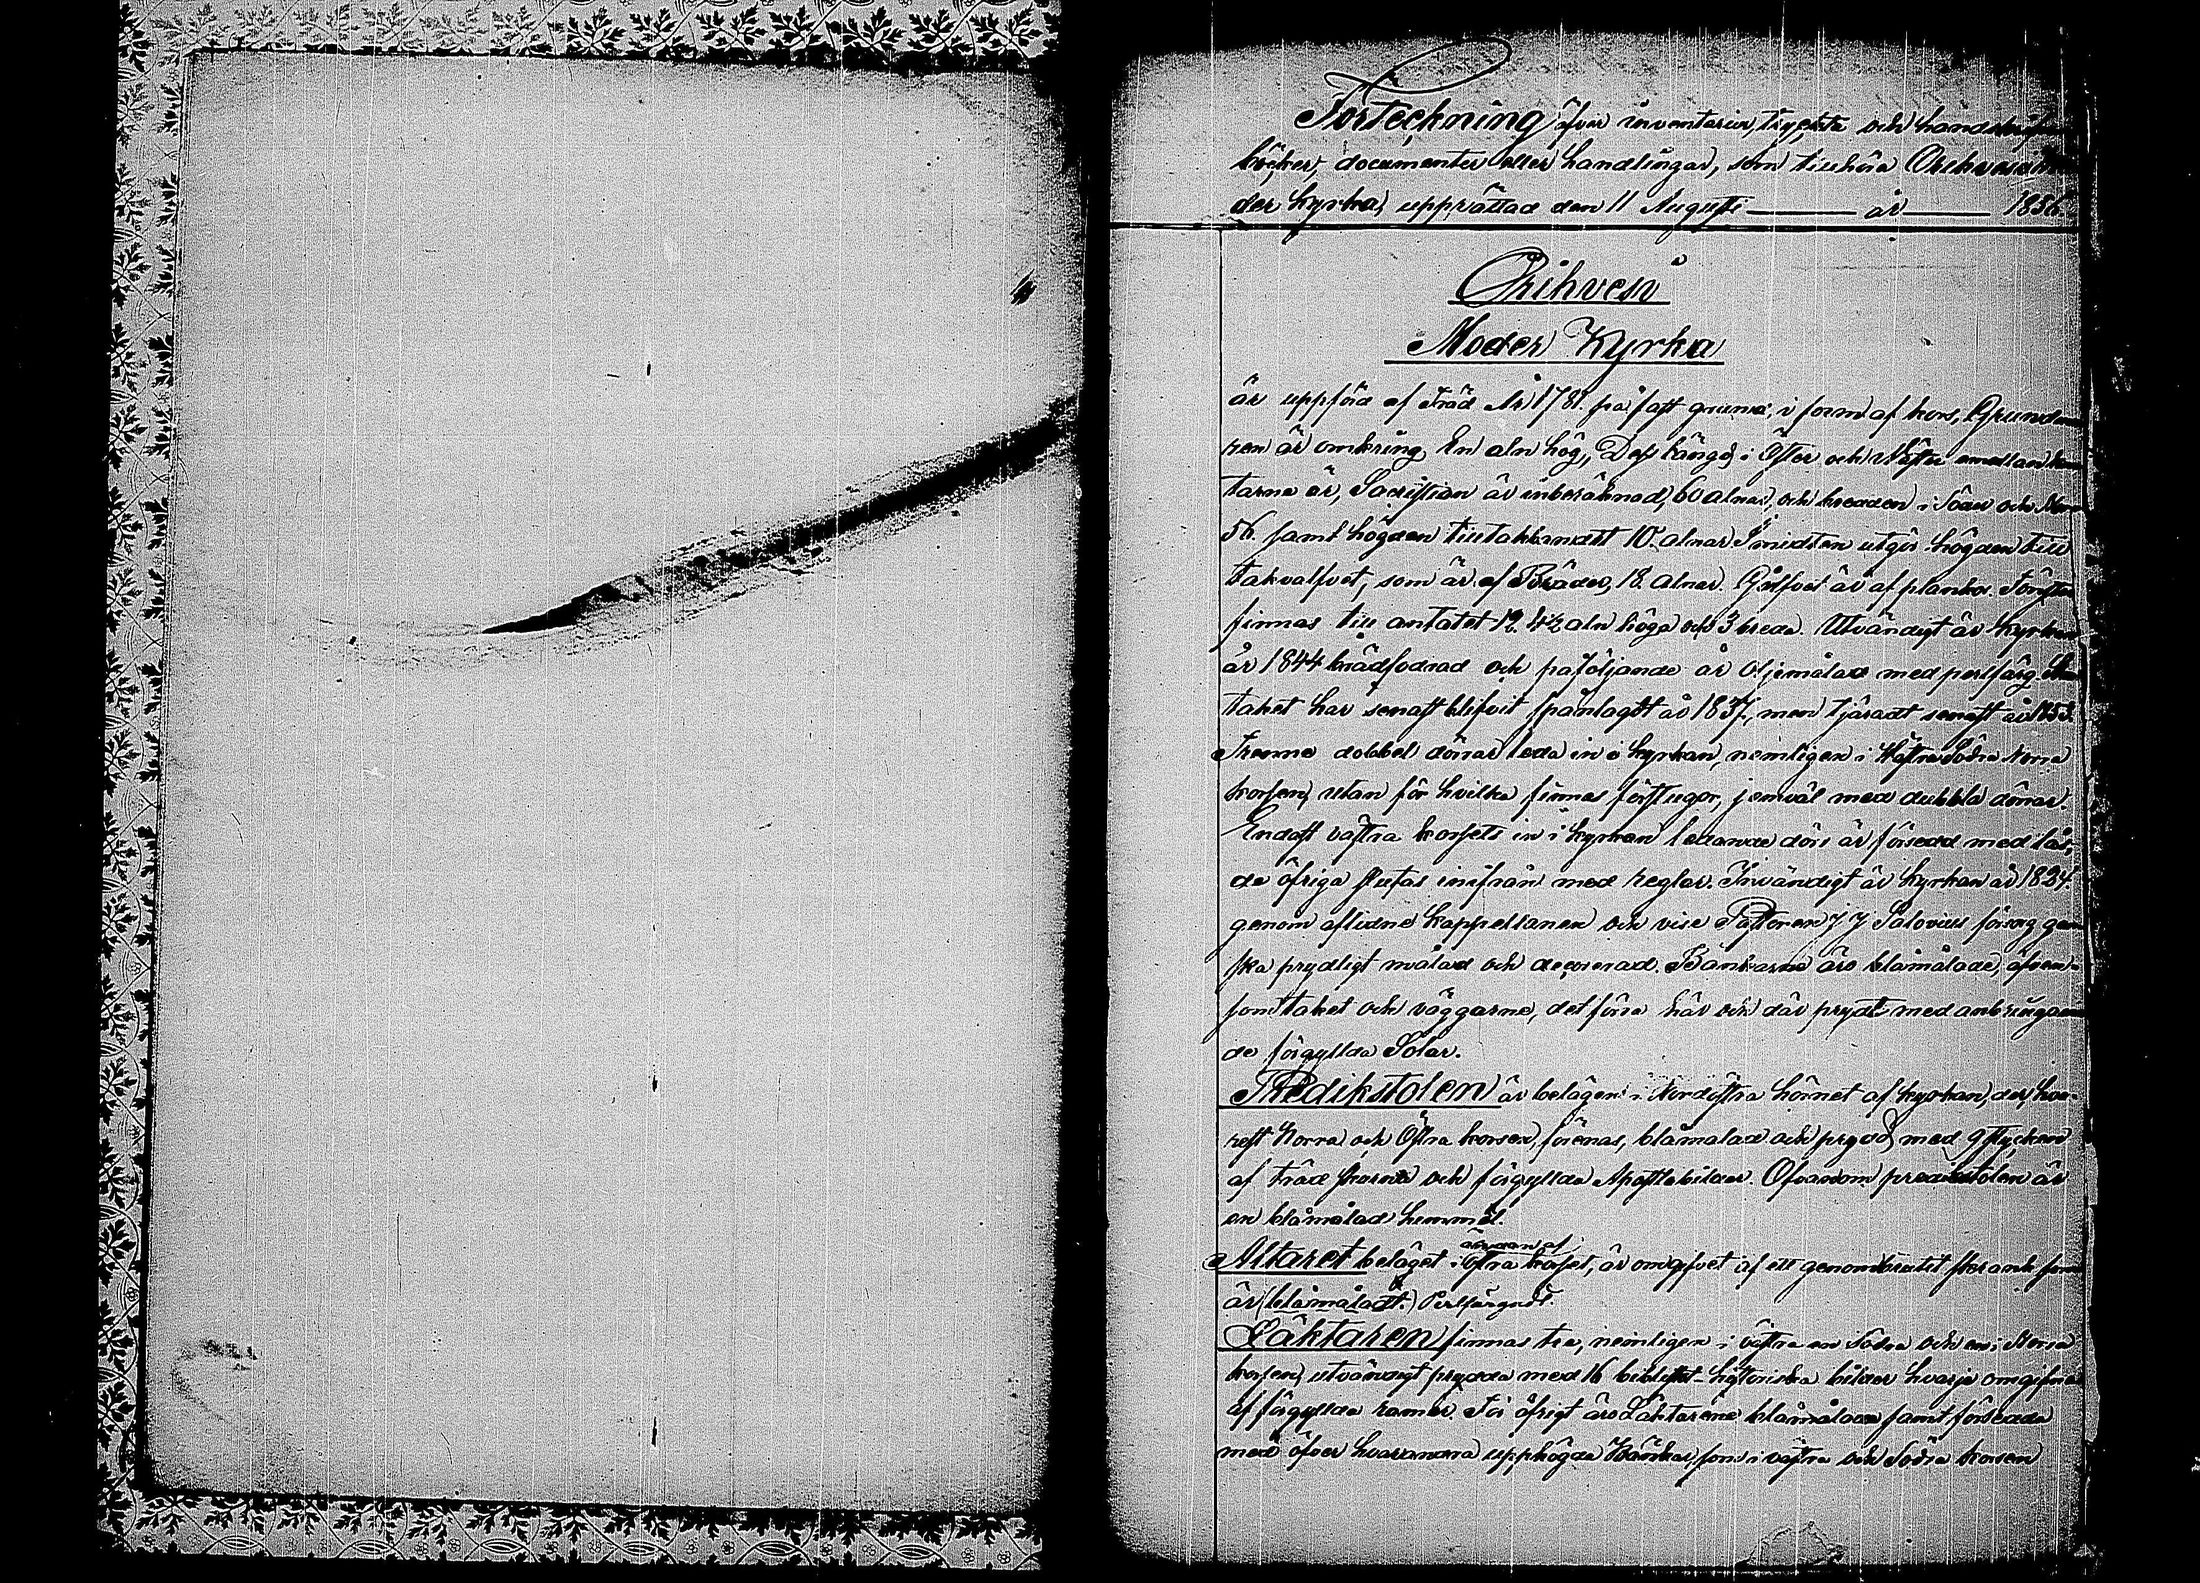 Förteckning öfver inventarier, tryckta och handskrifna
böcker, documenter eller handlingar, som tillhöra Orihvesi Mo
der kyrka, upprättad den 11 Augusti år 1856
Orihvesi
Moder Kyrka
är uppförd af Träd År 1781. på fast grund, i form af kors, Grundmu
ren är omkring En aln hög, Dess längd i Öster och Väster emellan
tarne är, Sacristian är inberäknad, 60 alnar, och bredden i Söder och Norr
56. samt högden till takbandet 10. alnar. I midten utgör högden till
takvalfvet, som är af Bräder, 18. alnar. Golfvet är af plankor. Fönster
finnas till antalet 12. 4½ aln höga och 3 breda. Utvändigt är kyrkan
år 1844 brädfodrad och påföljande år Oljemålad med perlfärg
taket har senast blifvit spånlagdt år 1837, men tjäradt senast år 1853.
Trenne dobbel dörrar leda in i kyrkan, nemligen i Vestra Södra Norra
korsen, utan för hvilka finnas förstugor, jemväl med dubbla dörrar.
Endast västra korsets in i kyrkan ledande dörr är försedd med lås,
de öfriga slutas inifrån med reglar. Invändigt är kyrkan år 1824.
genom aflidne kappellanen och vice Pastoren J J Salovius försorg gan
ska prydligt målad och decorerad. Bänkarne äro blåmålade, äfven-
som taket och väggarne, det förra här och där prydt med anbringan
de förgyllda Solar.
Predikstolen är belägen i Nordöstra hörnet af kyrkan, der, hva-
rest Norra och Östra korsen förenas, blåmålad och prydd med 9 stycken
af träd skurna och förgyllda Apostlabilder. Ofvanom predikstolen är
en blåmålad himmel.
Altaret beläget i Östra korset, är omgifvet af ett genombrutet skrank som
är (blåmåladt.) Perlfärgadt.
Läktaren finnas tre, nemligen i västra en Södra och en i Norra
korsen, utvändigt prydda med 16 bibliskt-historiska bilder hvarje omgifna
af förgyllda ramar. För öfrigt äro Läktarene blåmålade samt försedda
med öfver hvarandra upphögda Bänkar, som i västra och Södra korsen